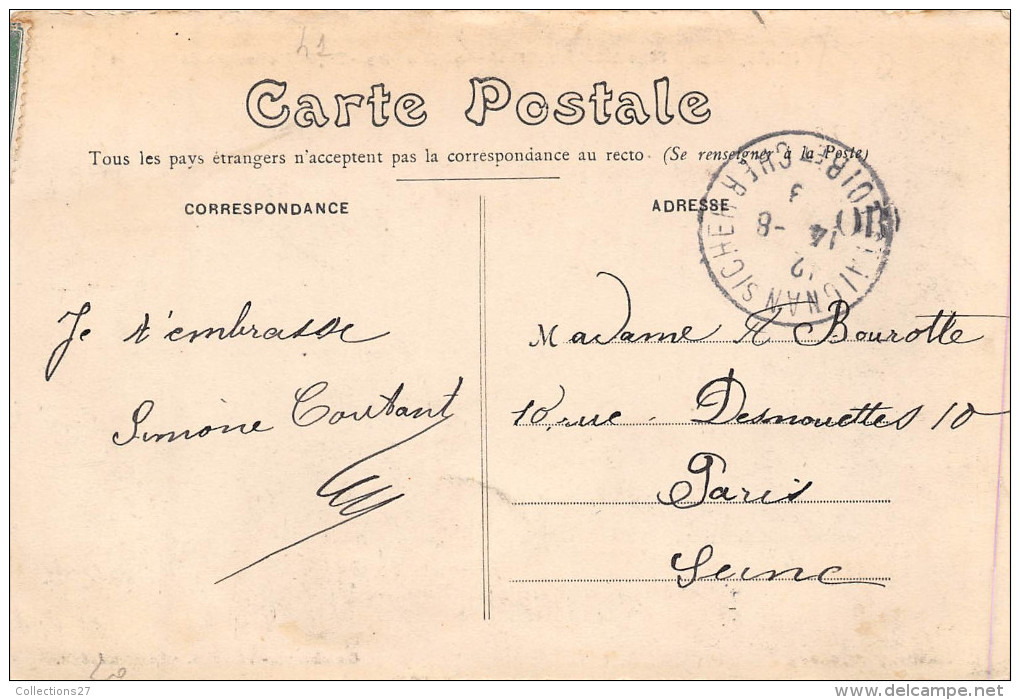 41
Carte Postale
Tous les pays étrangers n'acceptent pas la correspondance au recto (Se renseigner à la Poste)
CORRESPONDANCE
ADRESSE
AIGNAN S/CHER LOIR-ET-CHER
3
8-
14
12
OR
Je t'embrasse
Simone Coutant
Madame Bourotte
10, rue Desnouettes 10
Paris
Seine
Collections27
www.delcampe.net